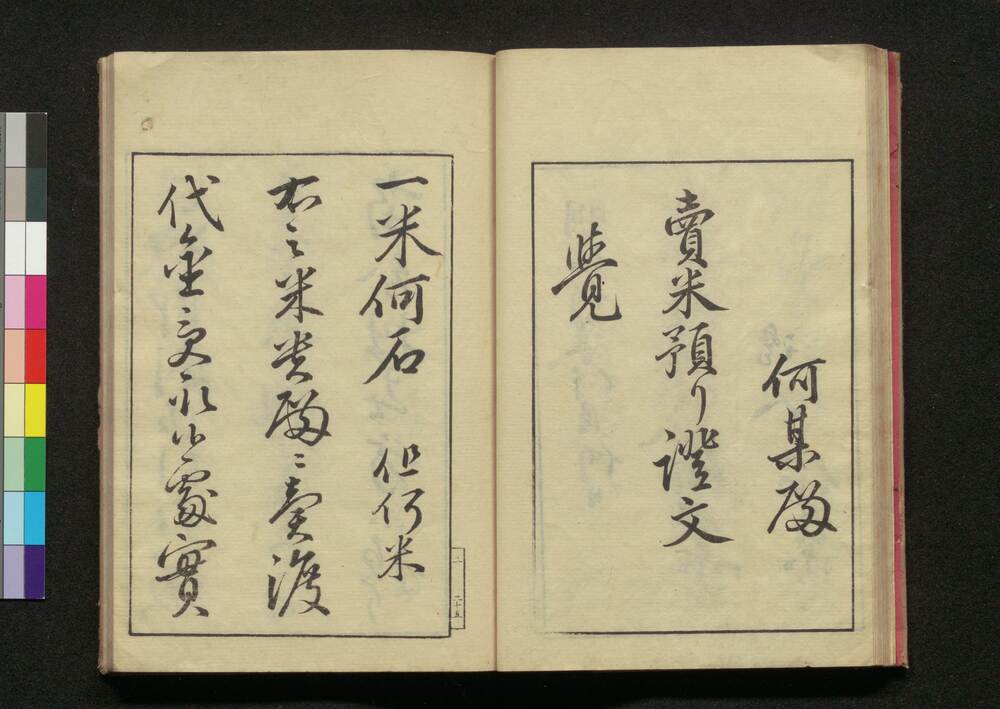 何某殿
賣米預り證文
覺
一米何石 但何米
右之米貴殿ニ賣渡
代金受取候處實
二十五